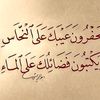 يَحْفِرُونَ عَيْبَكَ عَلَى النُّحَاسِ
يَكْتُبُونَ فَضَائِلَكَ عَلَى الْمَاءِ